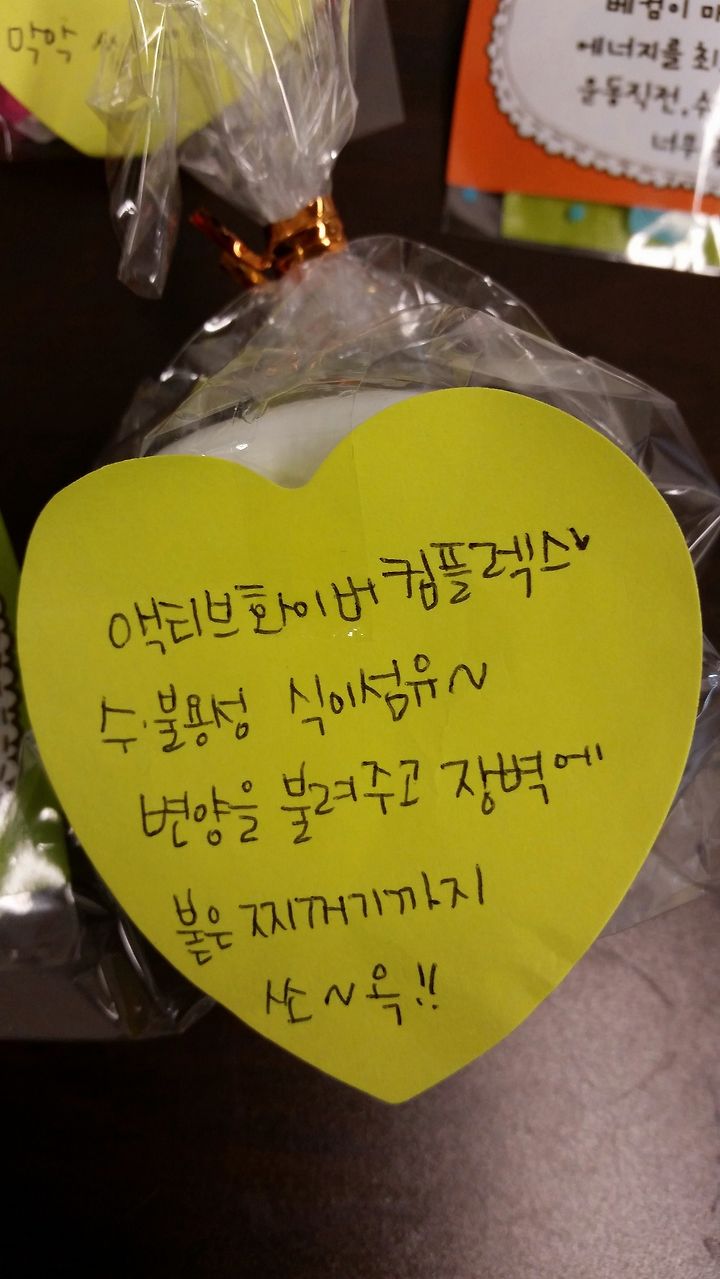 막악
베컴이
에너지를 최
운동직전, 수
너무
액티브화이버 컴플렉스♥
수·불용성 식이섬유~
변양을 불려주고 장벽에
붙은 찌꺼기까지
쏘~옥!!